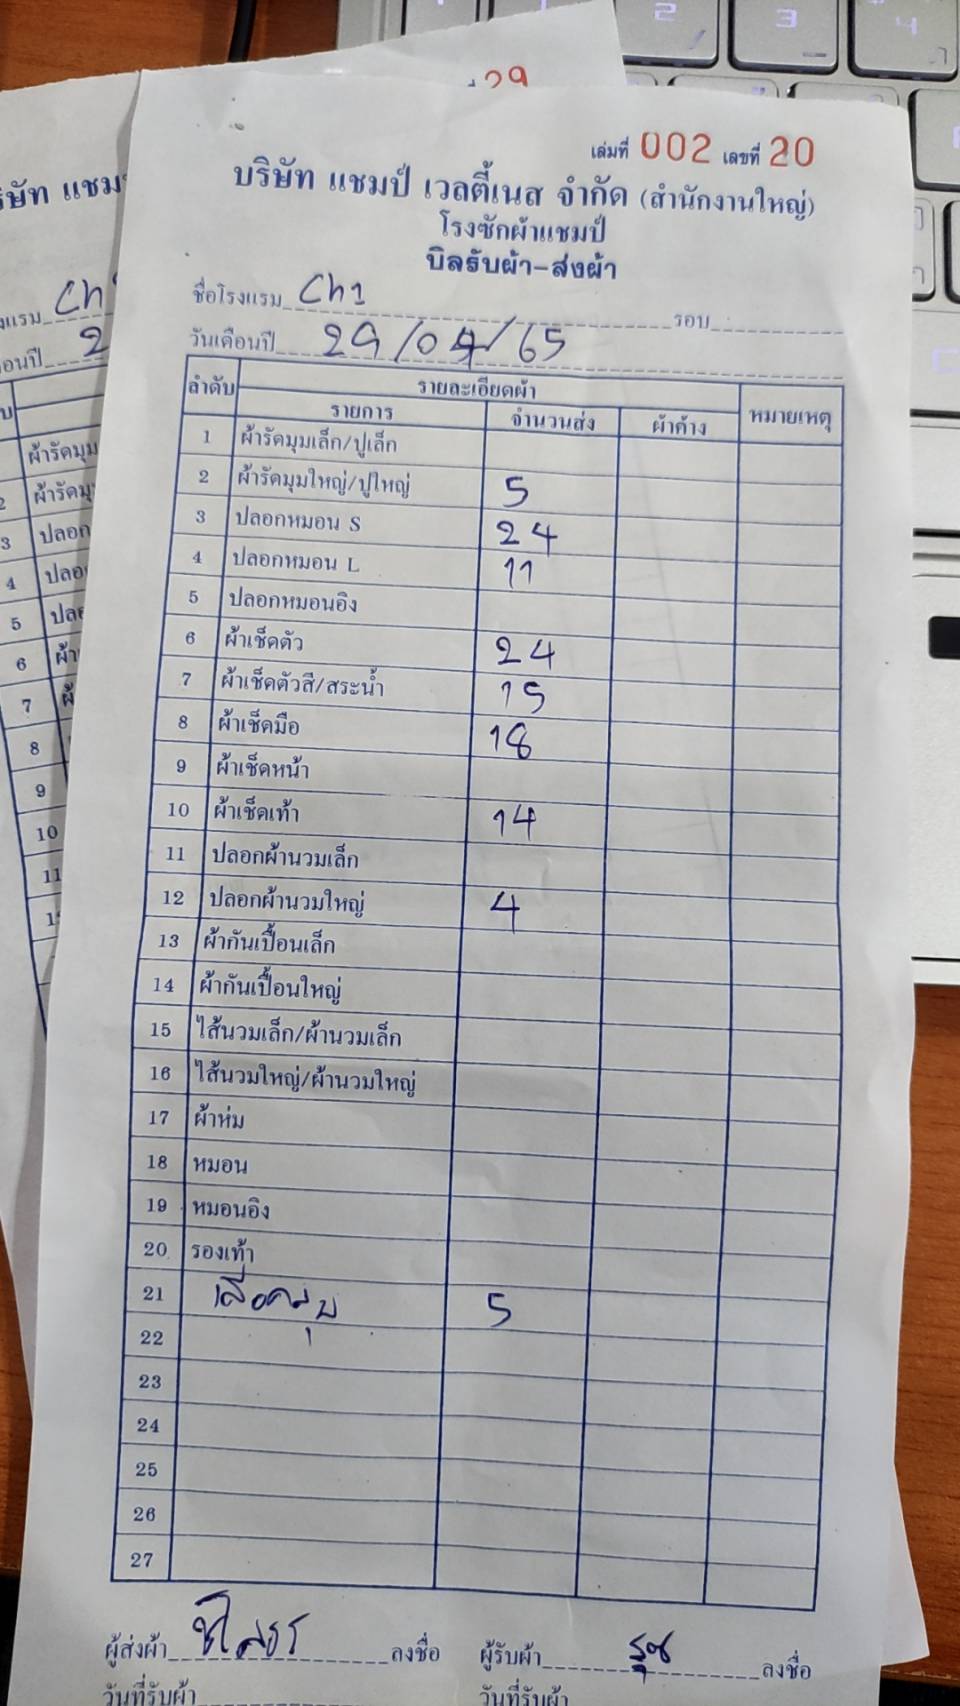 29
เล่มที่ 002 เลขที่ 20
บริษัท แชมป์ เวลตี้เนส จำกัด (สำนักงานใหญ่)
โรงซักผ้าแชมป์
บิลรับผ้า-ส่งผ้า
ชื่อโรงแรม Ch1 รอบ
วันเดือนปี 29/04/65
ลำดับ รายละเอียดผ้า หมายเหตุ
รายการ จำนวนส่ง ผ้าค้าง
1 ผ้ารัดมุมเล็ก/ปูเล็ก
2 ผ้ารัดมุมใหญ่/ปูใหญ่ 5
3 ปลอกหมอน S 24
4 ปลอกหมอน L 11
5 ปลอกหมอนอิง
6 ผ้าเช็ดตัว 24
7 ผ้าเช็ดตัวสี/สระน้ำ 15
8 ผ้าเช็ดมือ 18
9 ผ้าเช็ดหน้า
10 ผ้าเช็ดเท้า 14
11 ปลอกผ้านวมเล็ก
12 ปลอกผ้านวมใหญ่ 4
13 ผ้ากันเปื้อนเล็ก
14 ผ้ากันเปื้อนใหญ่
15 ไส้นวมเล็ก/ผ้านวมเล็ก
16 ไส้นวมใหญ่/ผ้านวมใหญ่
17 ผ้าห่ม
18 หมอน
19 หมอนอิง
20 รองเท้า
21 เสื้อคลุม 5
22
23
24
25
26
27
ผู้ส่งผ้า ลงชื่อ ผู้รับผ้า ลงชื่อ
วันที่รับผ้า วันที่รับผ้า